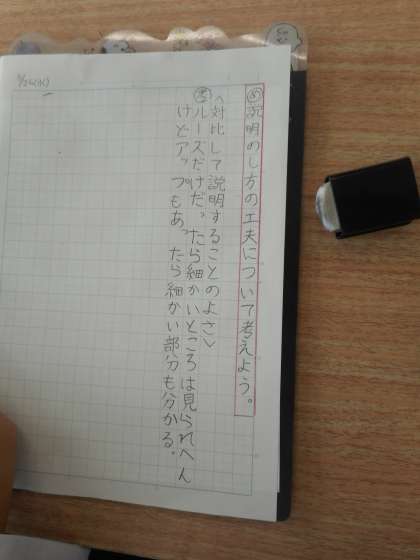 5/24(水)
め 説明のし方の工夫について考えよう。
〈対比して説明することのよさ〉
ルーズだけだったら細かいところは見られへん
けどアップもあったら細かい部分も分かる。